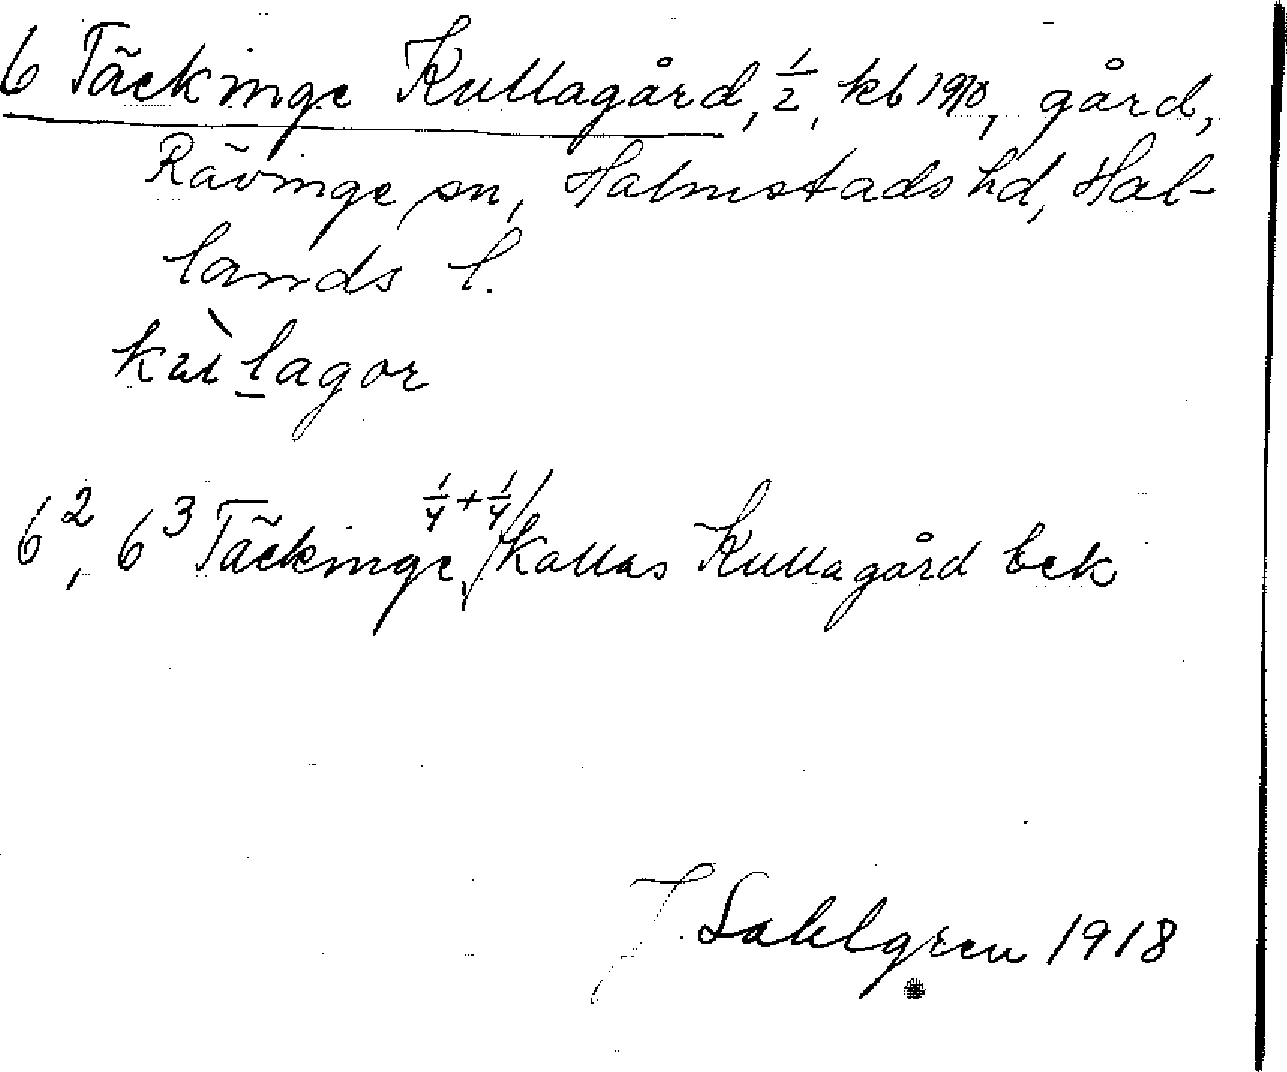 6 Täckinge Kullagård, 1/2, kb 1910, gård,
Rävinge sn, Halmstads hd, Hal-
lands l.
6², 6³ Täckinge, 1/4 + 1/4 / kallas Kullagård bek
J. Sahlgren 1918